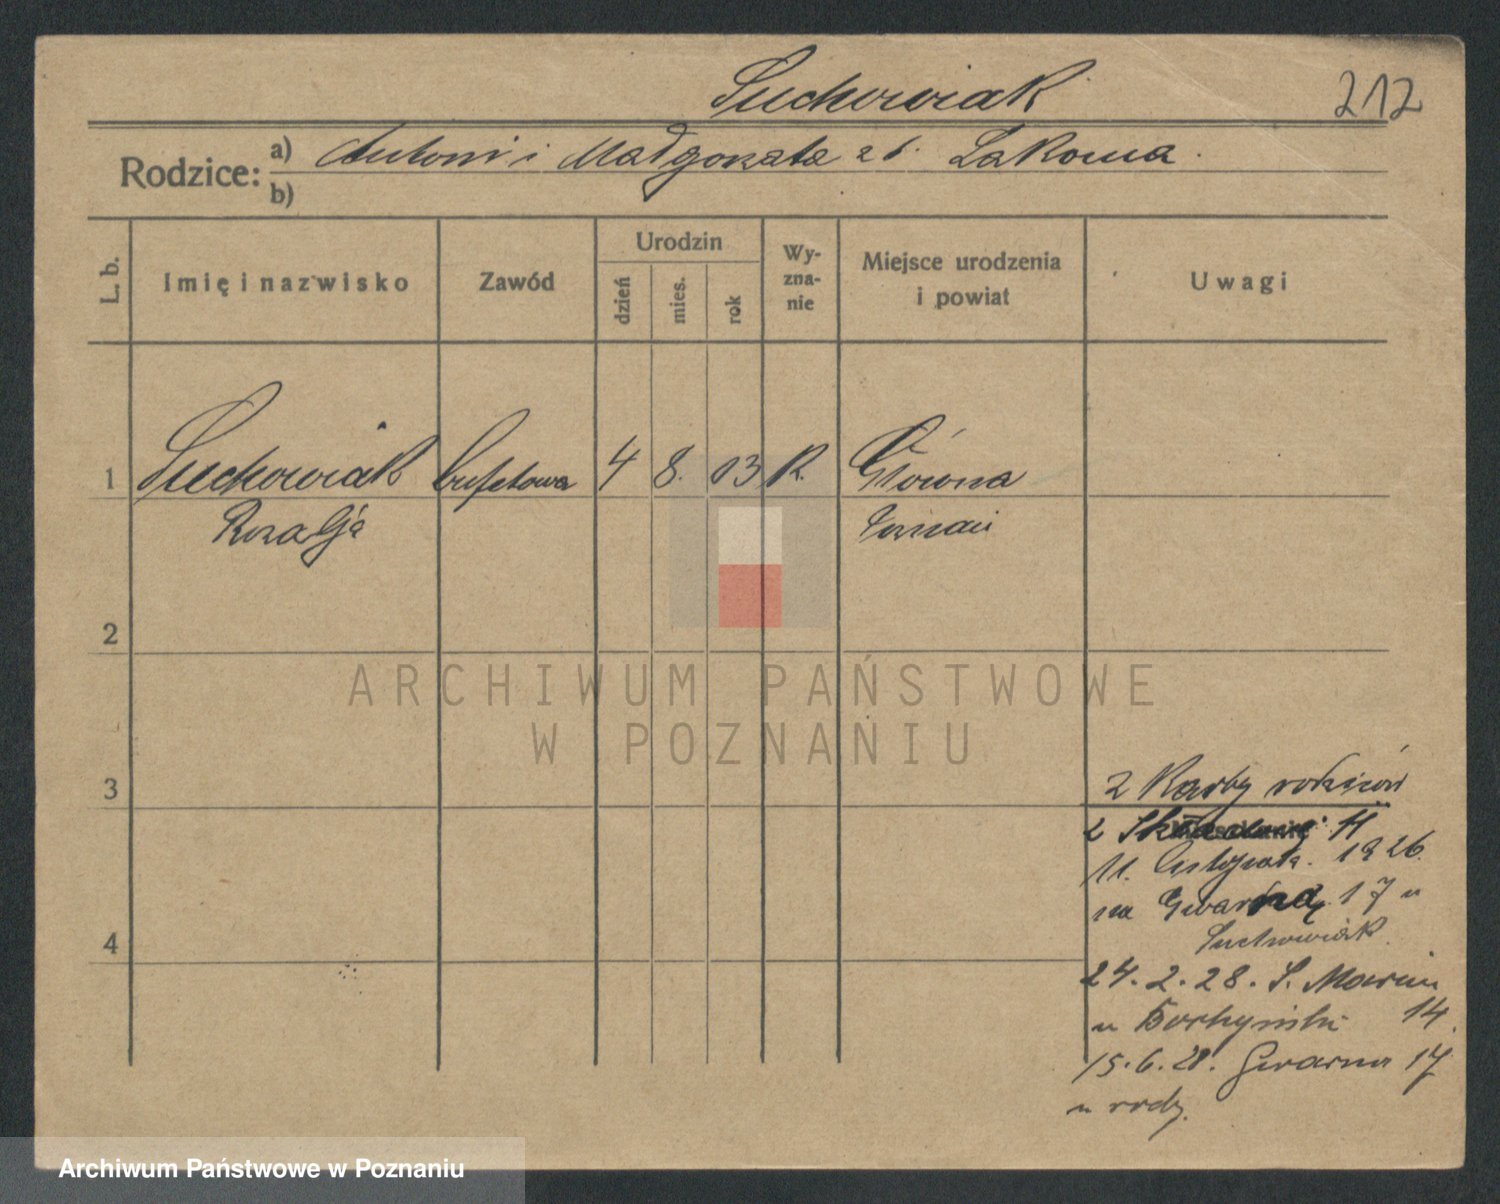 Suchowiak
212
Rodzice: a) Antoni i Małgorzata z d. Łakoma.
b)
L. b.
Imię i nazwisko
Zawód
Urodzin
dzień
mies.
rok
Wy-
zna-
nie
Miejsce urodzenia
i powiat
Uwagi
1 Suchowiak bufetowa 4 8. 13 R. Główna
Rozalja Poznań
2
ARCHIWUM PAŃSTWOWE
W POZNANIU
3
z Karty rodziców
z 11
11. listopada. 1926.
na Gwarną 17 u
Suchowiak.
4
24. 2. 28. S. Marcin
u 14.
15. 6. 28. Gwarna 17
u rodz.
Archiwum Państwowe w Poznaniu